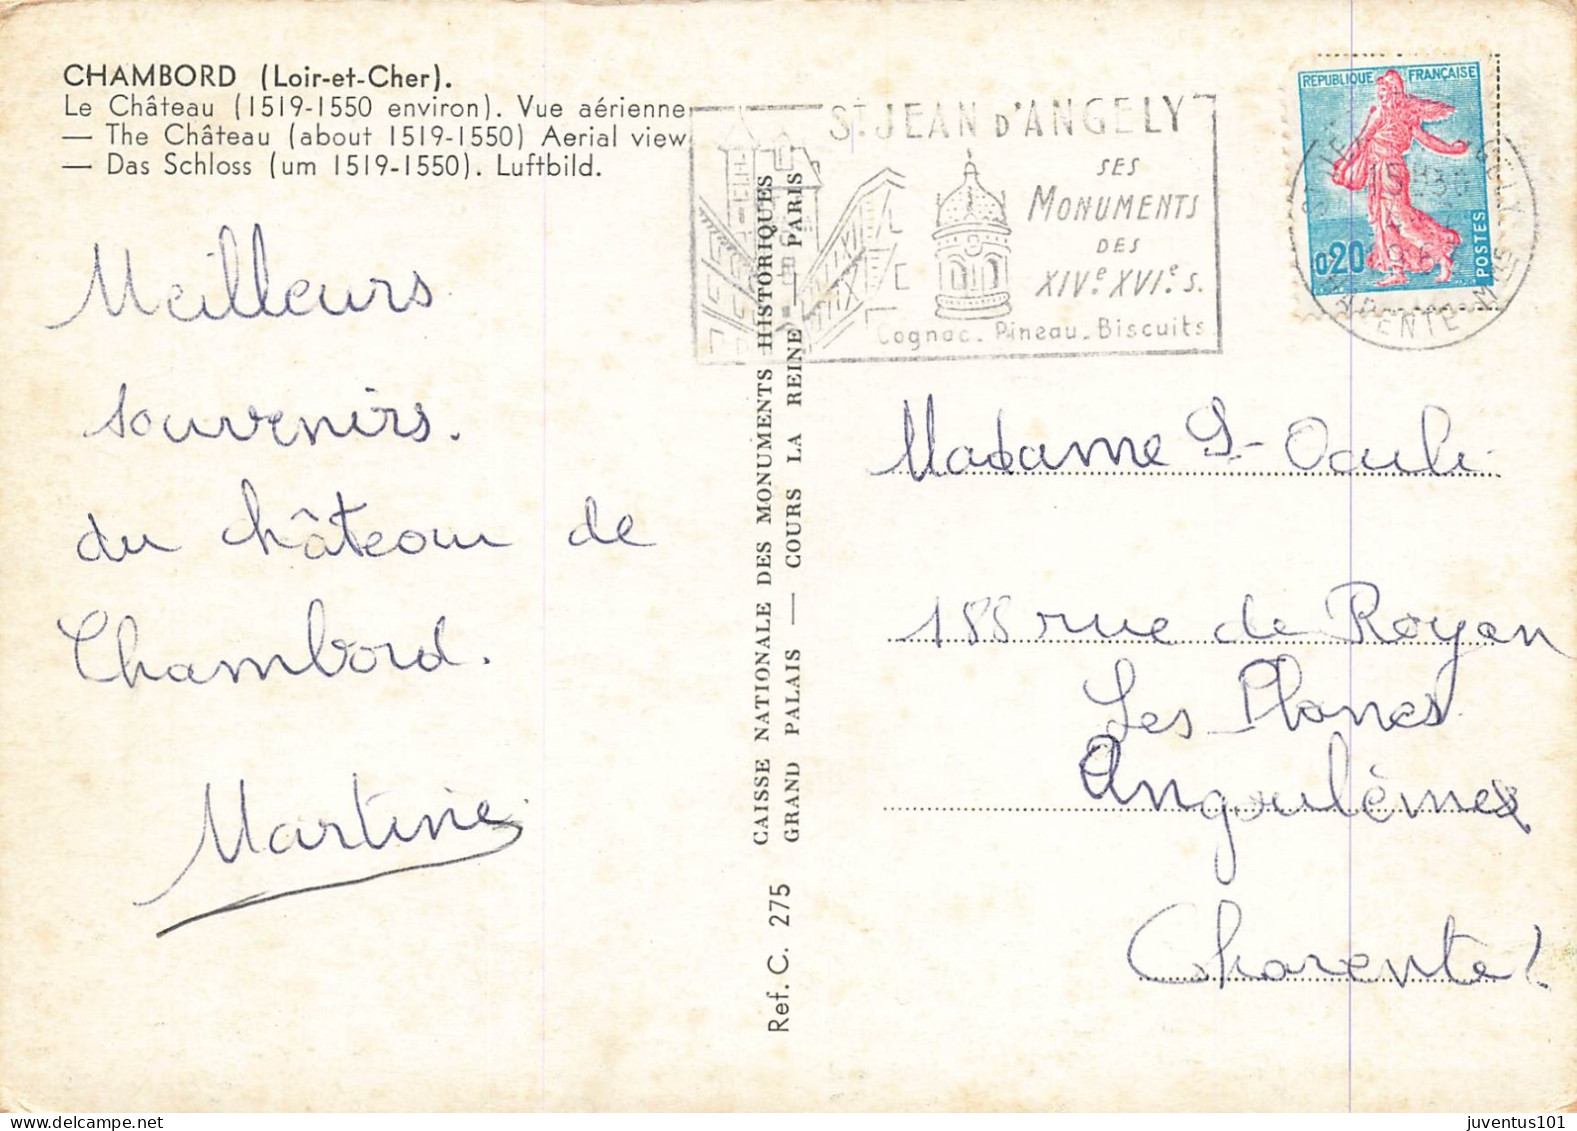 CHAMBORD (Loir-et-Cher).
Le Château (1519-1550 environ). Vue aérienne
— The Château (about 1519-1550) Aerial view
— Das Schloss (um 1519-1550). Luftbild.
Meilleurs
souvenirs.
du château de
Chambord.
Martine
CAISSE NATIONALE DES MONUMENTS HISTORIQUES
GRAND PALAIS — COURS LA REINE PARIS
Ref. C. 275
St JEAN D'ANGELY
SES
MONUMENTS
DES
XIVe. XVIe. S.
Cognac. Pineau. Biscuits
REPUBLIQUE FRANÇAISE
0,20
POSTES
Madame
188 rue de Royan
Les Planes
Angoulême
Charente
juventus101